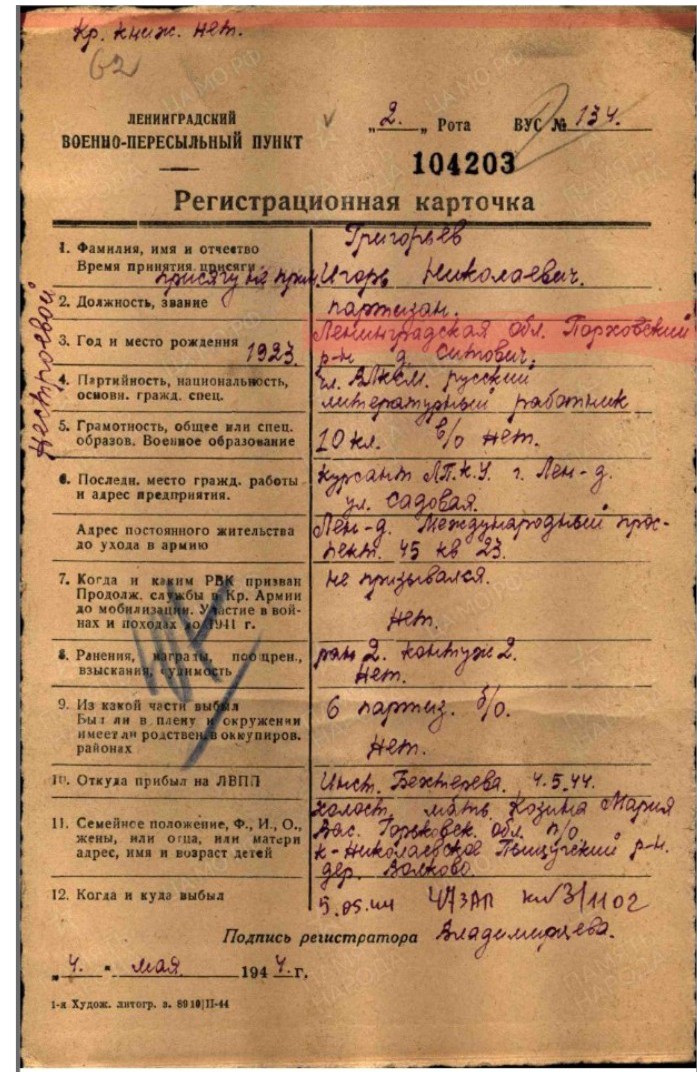 Кр. книж. нет.
62
ЛЕНИНГРАДСКИЙ
ВОЕННО-ПЕРЕСЫЛЬНЫЙ ПУНКТ
„2.„ Рота ВУС № 134.
104203
Регистрационная карточка
нестроевой
1. Фамилия, имя и отчество Григорьев
Время принятия присяги присягу не прин. Игорь Николаевич.
2. Должность, звание партизан.
3. Год и место рождения 1923. Ленинградская обл. Порховский
р-н д. Ситович.
4. Партийность, национальность, чл. ВЛКСМ. русский
основн. гражд. спец. литературный работник
5. Грамотность, общее или спец.
образов. Военное образование 10 кл. в/о нет.
6. Последн. место гражд. работы курсант Л.П.К.У. г. Лен-д.
и адрес предприятия. ул. Садовая.
Адрес постоянного жительства Лен-д. Международный прос-
до ухода в армию пект. 45 кв 23.
7. Когда и каким РВК призван не призывался.
Продолж. службы в Кр. Армии
до мобилизации. Участие в вой-
нах и походах до 1941 г. нет.
8. Ранения, награды, поощрен., ран 2. контуж 2.
взыскания, судимость нет.
9. Из какой части выбыл 6 партиз. б/о.
Был ли в плену и окружении
имеет ли родствен. в оккупиров.
районах нет.
10. Откуда прибыл на ЛВПП Инст. Бехтерева. 4.5.44.
11. Семейное положение, Ф., И., О., холост, мать Козина Мария
жены, или отца, или матери Вас. Горьковск. обл. п/о
адрес, имя и возраст детей к-Николаевское Пыщугский р-н.
дер. Волково.
12. Когда и куда выбыл 5.05.44 47ЗАП
Подпись регистратора
„4.„ мая 1944. г.
1-я Худож. литогр. з. 8910|II-44